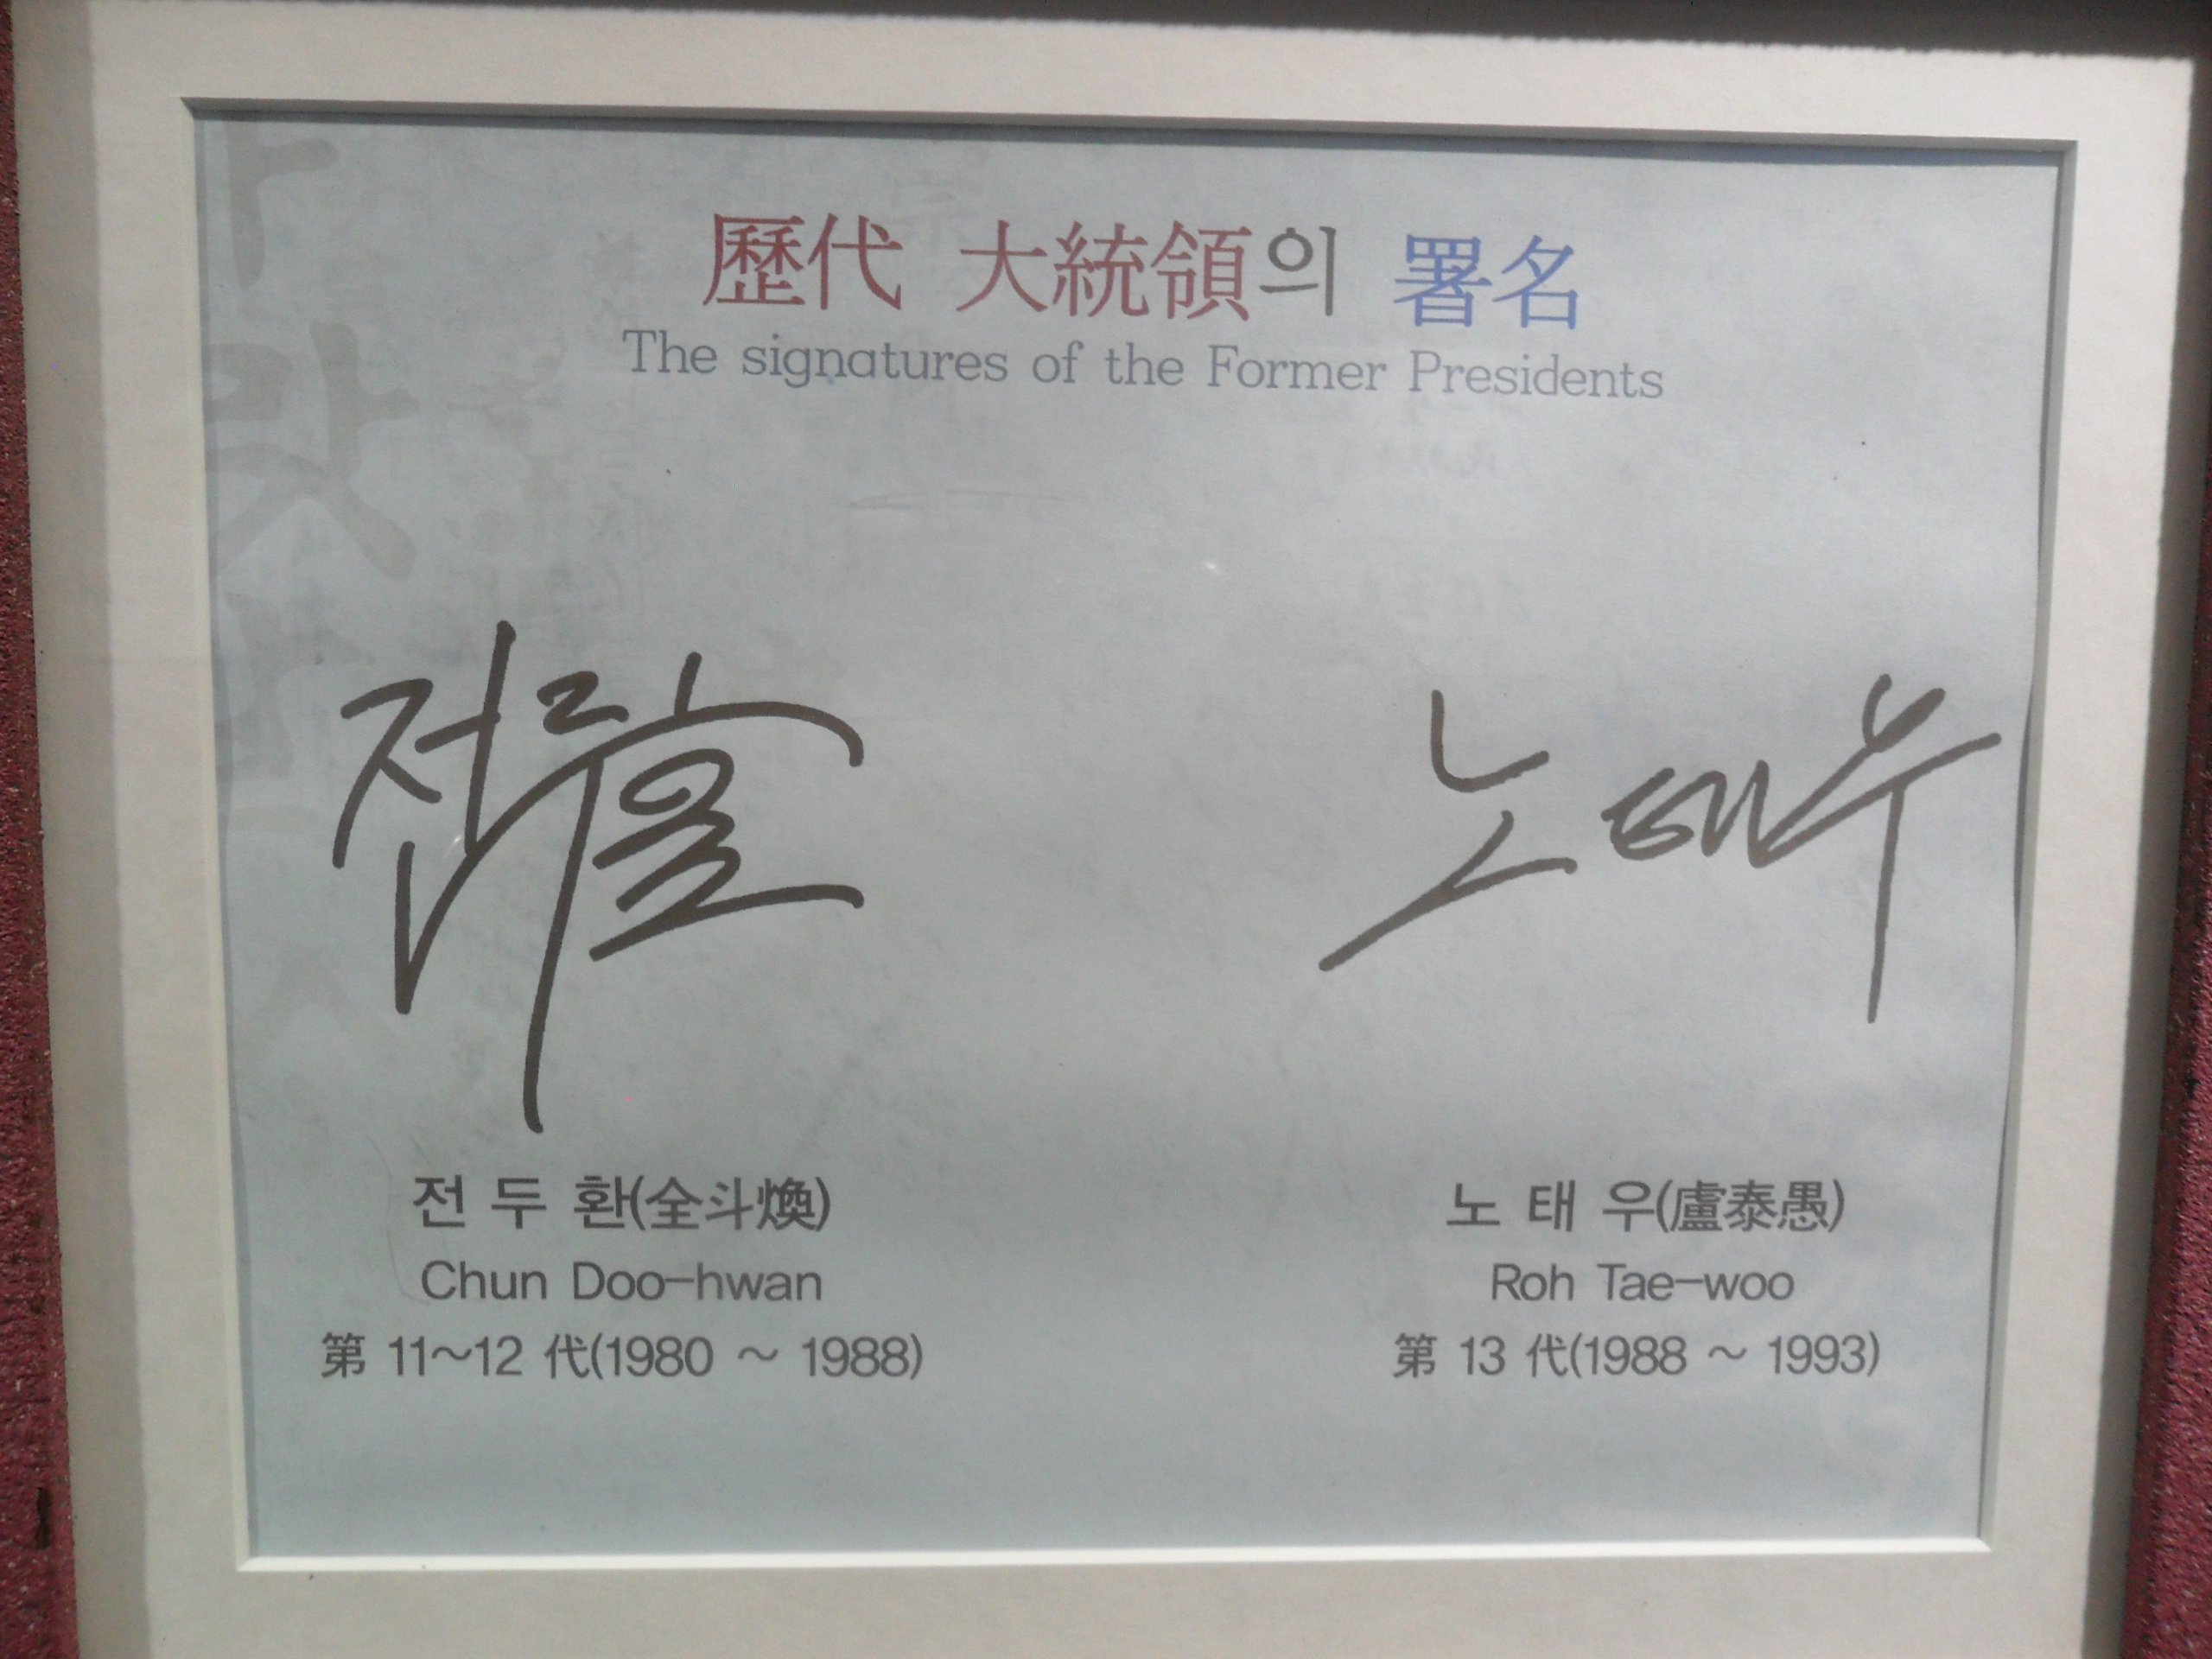 歷代 大統領의 署名
The signatures of the Former Presidents
전두환 노태우
전 두 환(全斗煥) 노 태 우(盧泰愚)
Chun Doo-hwan Roh Tae-woo
第 11~12 代(1980 ~ 1988) 第 13 代(1988 ~ 1993)